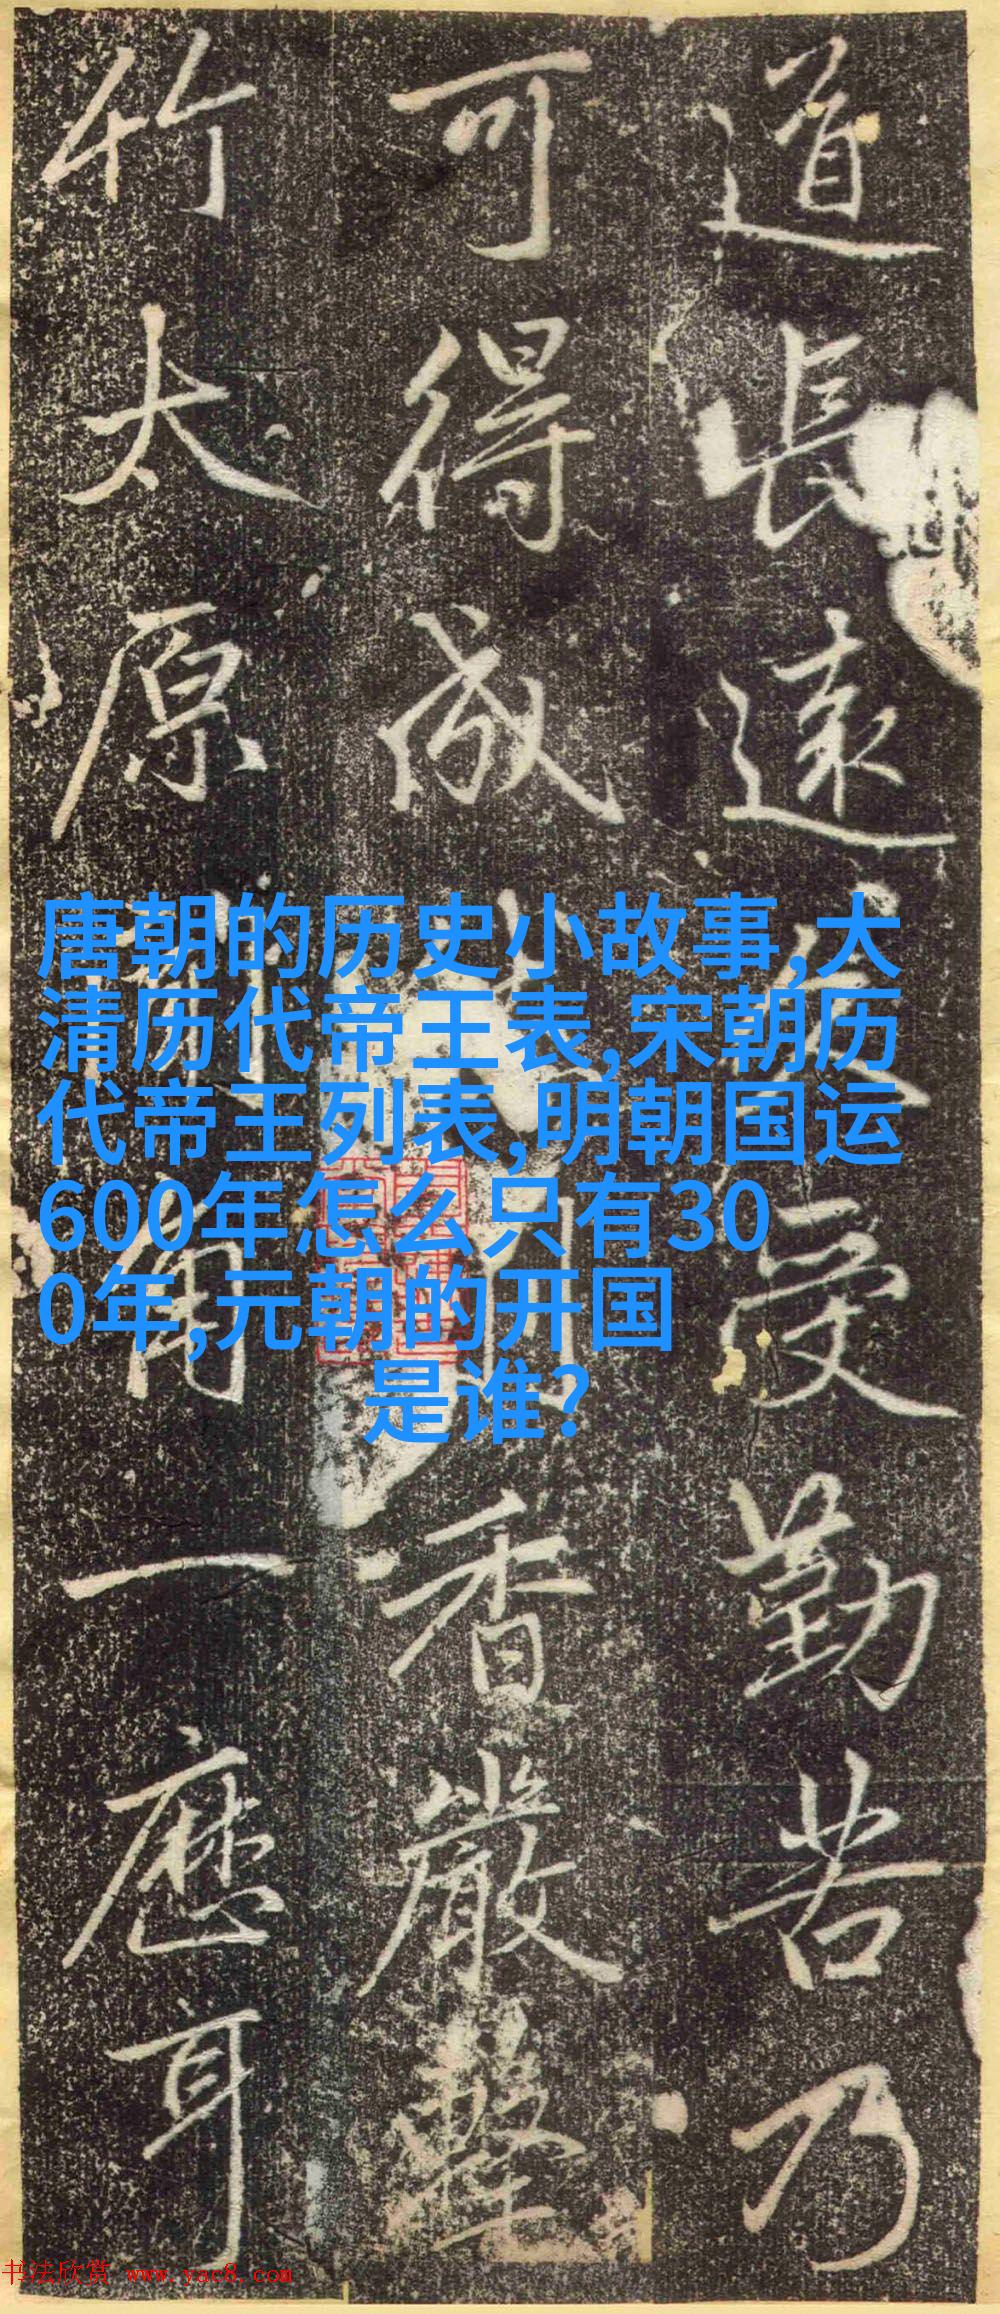 道長遠久受勤苦乃
可得成
香嚴擊
竹太原
一應耳
唐朝的历史小故事,大
清历代帝王表,宋朝历
代帝王列表,明朝国运
600年怎么只有30
0年,元朝的开国
是谁?
书法欣赏 www.yac8.com